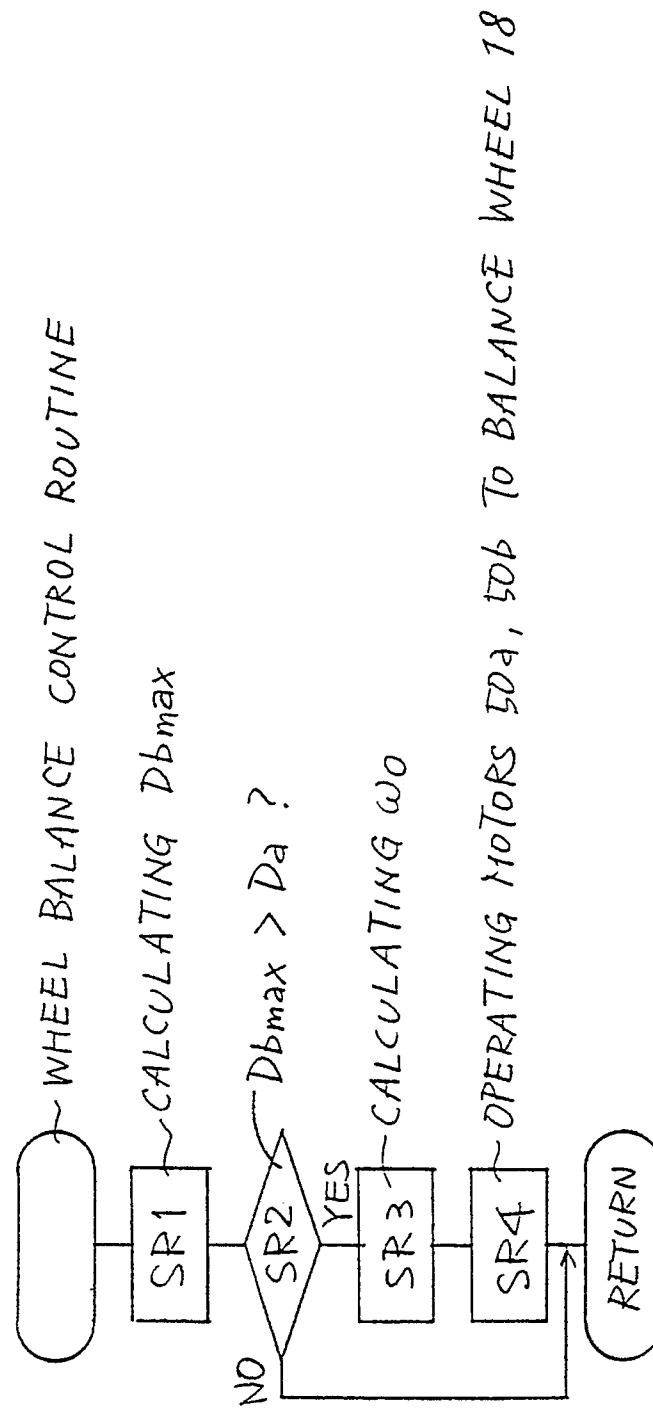 WHEEL BALANCE CONTROL ROUTINE
SR1
CALCULATING Dbmax
SR2
Dbmax > Da ?
NO
YES
SR3
CALCULATING ω0
SR4
OPERATING MOTORS 50a, 50b TO BALANCE WHEEL 18
RETURN